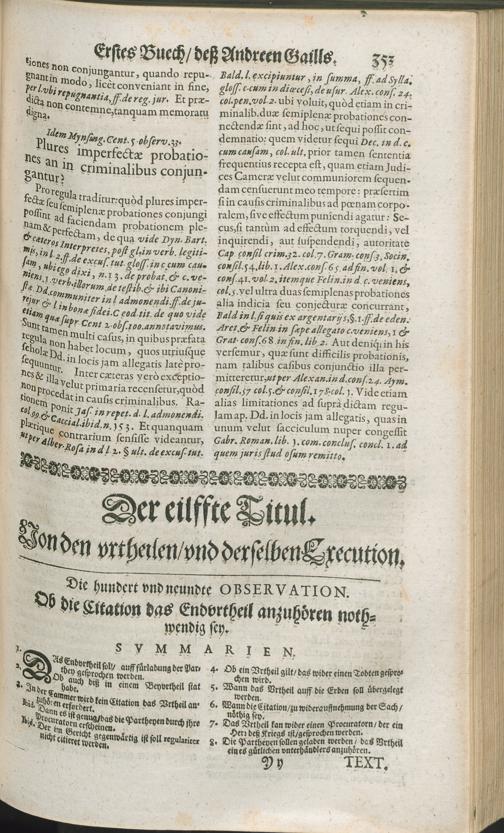 Erstes Buech / deß Andreen Gaills. 353
tiones non conjungantur, quando repu-
gnant in modo, licèt conveniant in fine,
per l. ubi repugnantia, ff. de reg. jur. Et præ-
dicta non contemne, tanquam memoratu
digna.
Idem Mynsing. Cent. 5 observ. 33.
Plures imperfectæ probatio-
nes an in criminalibus conjun-
gantur?
Pro regula traditur: quòd plures imper-
fectæ seu semiplenæ probationes conjungi
possint ad faciendam probationem ple-
nam & perfectam, de qua vide Dyn. Bart.
& cæteros Interpretes, post gl. in verb. legiti-
mis, in l. 2. ff. de excus. tut. gloss. in c. cum cau-
sam, ubi ego dixi, n. 13. de probat. & c. ve-
niens, 1. verb. illorum, de testib. & ibi Canoni-
stæ. Dd. communiter in l. admonendi. ff. de ju-
rejur & l in bona fidei. C eod. tit. de quo vide
etiam quæ supr Cent 2 obs. 100. annotavimus.
Sunt tamen multi casus, in quibus præfata
regula non habet locum, quos utriusque
scholæ Dd. in locis jam allegatis latè pro-
sequuntur. Inter cæteras verò exceptio-
nes & illa velut primaria recensetur, quòd
non procedat in causis criminalibus. Ra-
tionem ponit Jas. in repet. d. l. admonendi.
col. 99. & Caccial. ibid. n. 353. Et quanquam
plærique contrarium sensisse videantur,
ut per Alber. Rosa in d l 2. § ult. de excus. tut.
Bald. l. excipiuntur, in summa, ff. ad Sylla.
gloss. c. cum in diœcesi, de usur. Alex. cons. 24.
col. pen. vol. 2. ubi voluit, quòd etiam in cri-
minalib. duæ semiplenæ probationes con-
nectendæ sint, ad hoc, ut sequi possit con-
demnatio: quem videtur sequi Dec. in d. c.
cum causam, col. ult. prior tamen sententia
frequentius recepta est, quam etiam Judi-
ces Cameræ velut communiorem sequen-
dam censuerunt meo tempore: præsertim
si in causis criminalibus ad pœnam corpo-
ralem, sive effectum puniendi agatur: Se-
cus, si tantùm ad effectum torquendi, vel
inquirendi, aut suspendendi, autoritate
Cap consil crim. 32. col. 7. Gram. cons 3. Socin.
consil. 54. lib. 1. Alex. cons. 65. ad fin. vol. 1, &
cons. 41. vol. 2. itemque Felin. in d. c. veniens,
col. 5. vel ultra duas semiplenas probationes
alia indicia seu conjecturæ concurrant,
Bald in l. si quis ex argentarijs, §. 1. ff. de eden.
Aret, & Felin in sæpe allegato c. veniens, 1 &
Grat cons. 68 in fin. lib 2. Aut deniq; in his
versemur, quæ sunt difficilis probationis,
nam talibus casibus conjunctio illa per-
mitteretur, ut per Alexan. in d. cons. 24. Aym.
consil. 17 col. 5, & consil. 178. col. 1. Vide etiam
alias limitationes ad suprà dictam regu-
lam ap. Dd. in locis jam allegatis, quas in
unum velut sacciculum nuper congessit
Gabr. Roman. lib. 1. com. conclus. concl. 1. ad
quem juris stud osum remitto.
Der eilffte Titul.
Von den vrtheilen / vnd derselben Execution.
Die hundert vnd neundte OBSERVATION.
Ob die Citation das Endvrtheil anzuhören noth-
wendig sey.
SVMMARIEN.
1. DAs Endvrtheil sol / auff fürladung der Par-
they gesprochen werden.
2. Ob auch diß in einem Beyvrtheil stat
habe.
3. In der Cammer wird kein Citation das Vrtheil an-
zuhören erfordert.
Ibid. Dann es ist genug / das die Partheyen durch ihre
Procuratorn erscheinen.
Ibid. Der im Gericht gegenwärtig ist soll regulariter
nicht citieret werden.
4. Ob ein Vrtheil gilt / das wider einen Todten gespro-
chen wird.
5. Wann das Vrtheil auff die Erben soll übergelegt
werden.
6. Wann die Citation / zu wideruoffnemung der Sach /
nötbig sey.
7. Das Vrtheil kan wider einen Procuratorn / der ein
Herr deß Kriegs ist / gesprochen werden.
8. Die Partheyen sollen geladen werden / das Vrtheil
ein es gütlichen vnterhändlers anzuhören.
Y y TEXT.